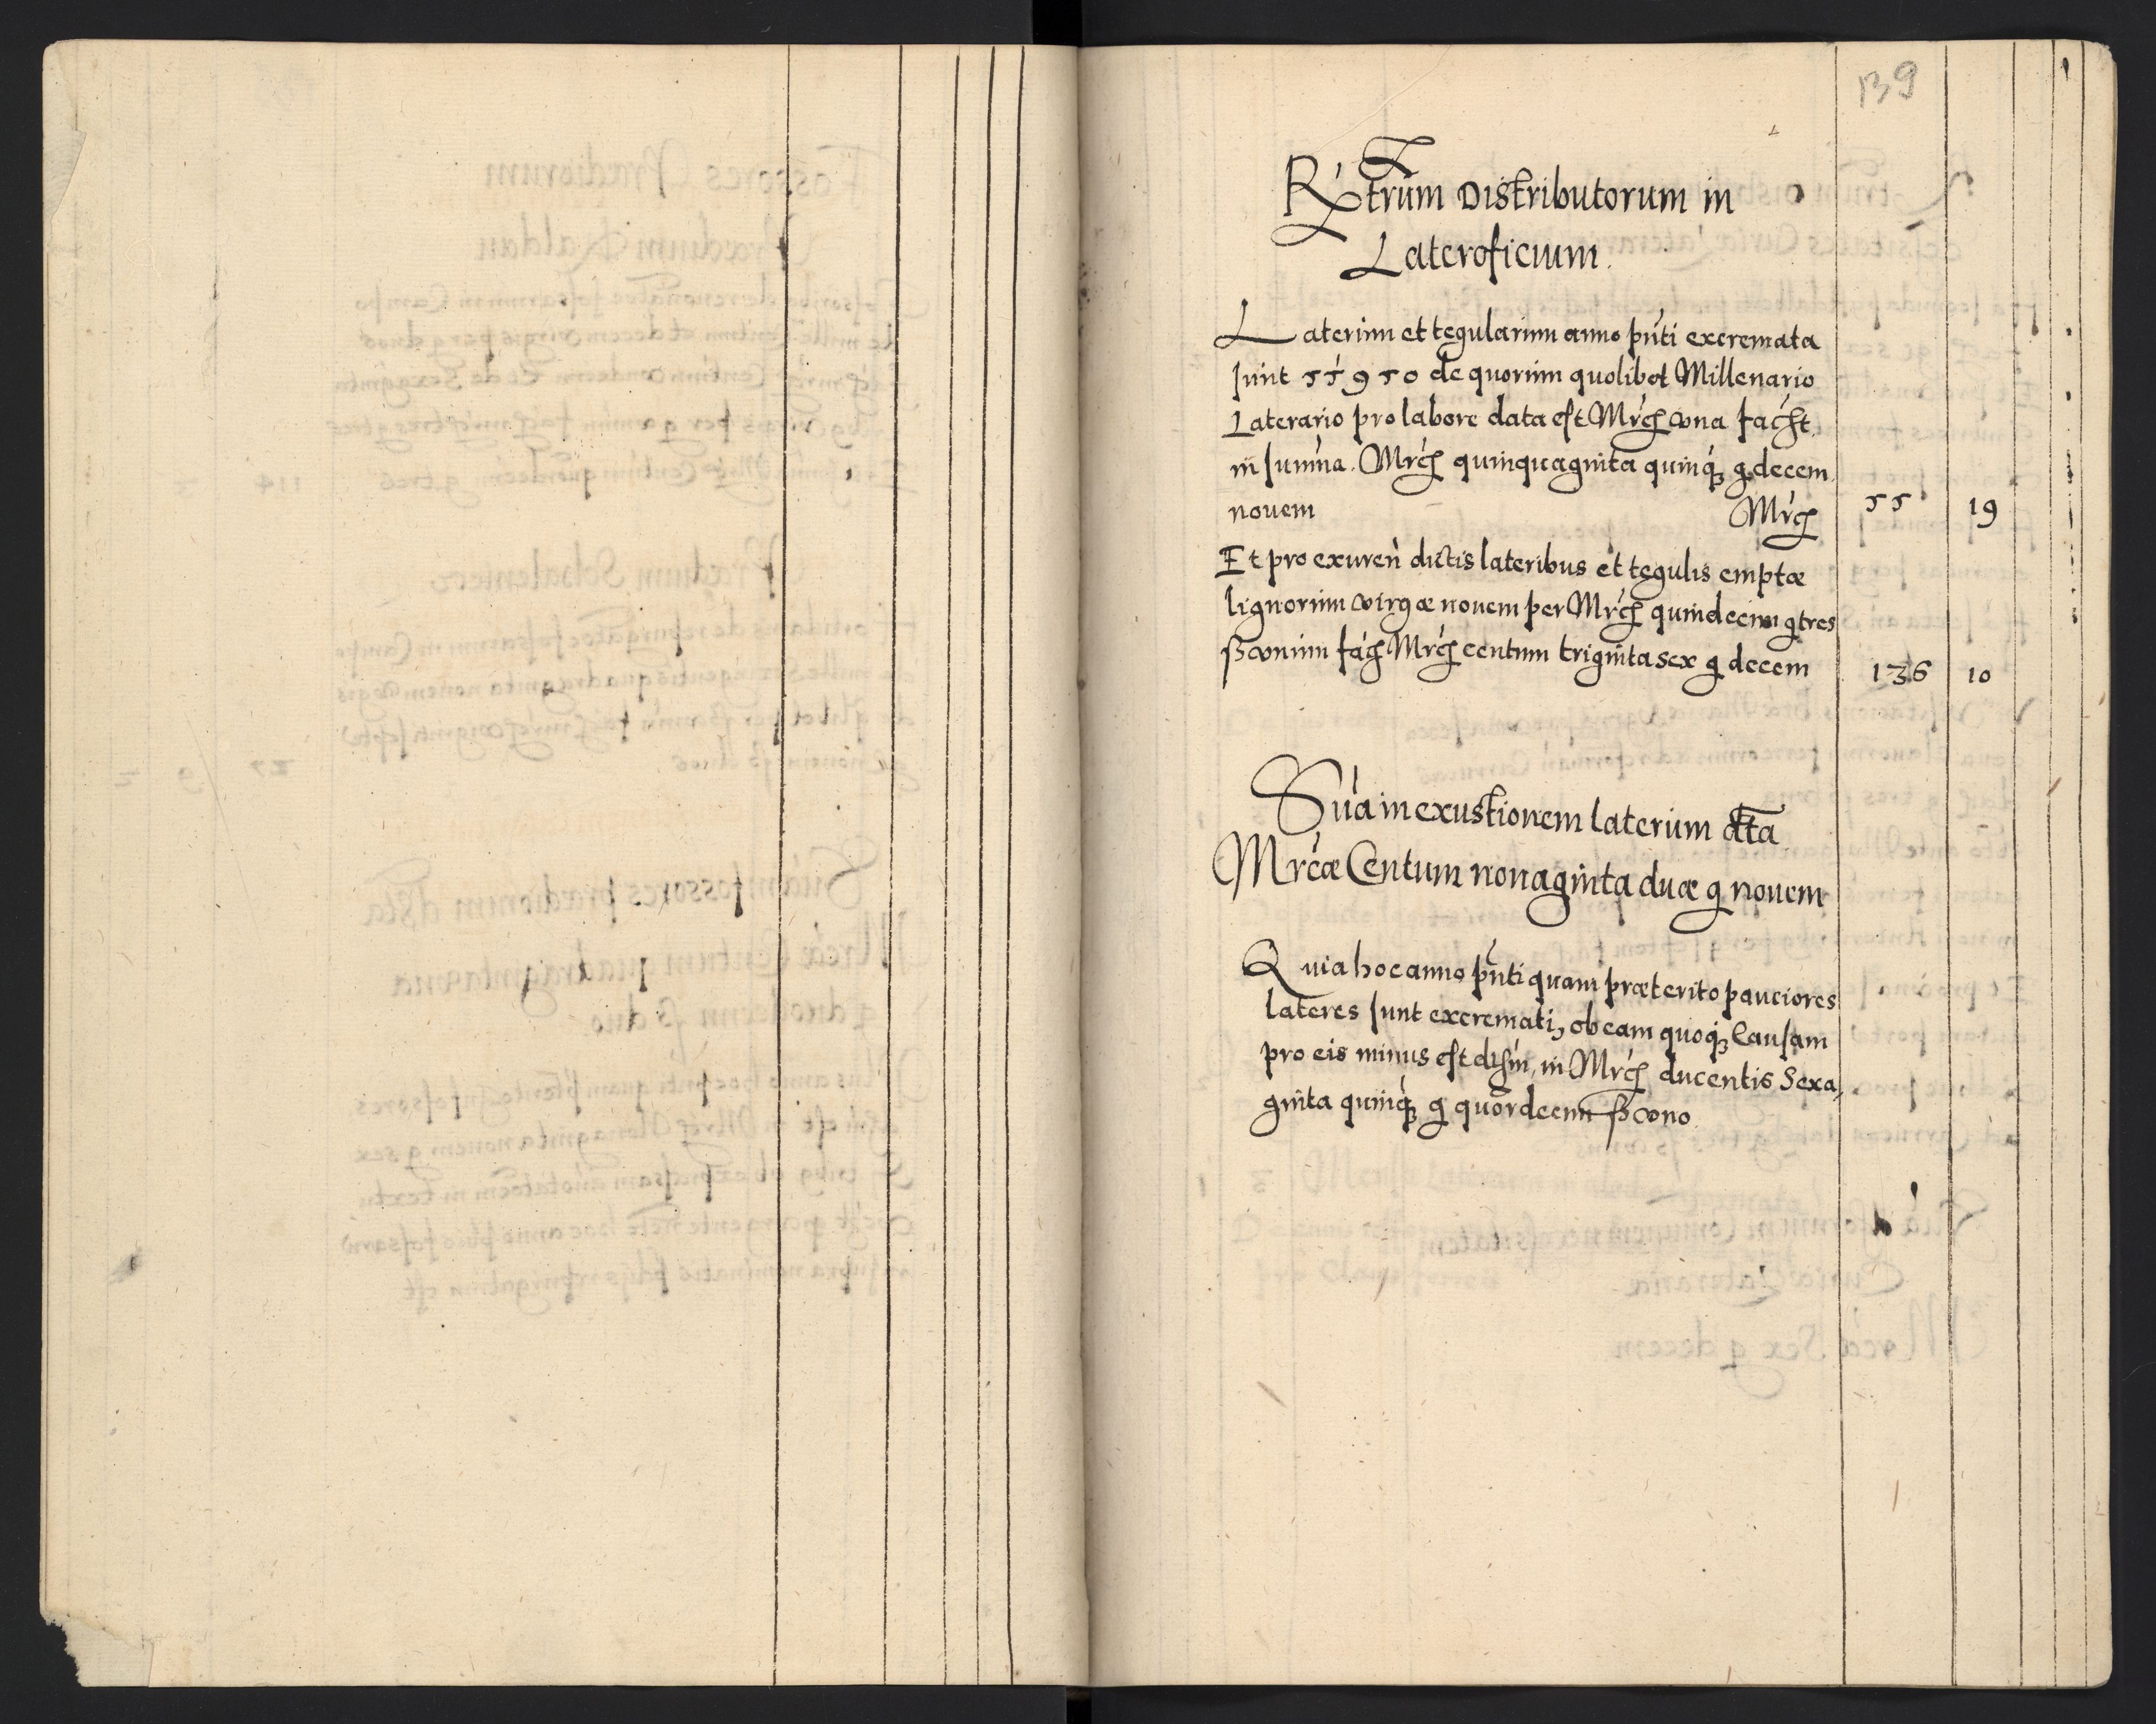 139
Rxtrum Distributorum in
Lateroficium.
Laterum et tegularum anno pñti excremata
sunt 55950 de quorum quolibet Millenario
Laterario pro labore data est Mrcꝭ vna facꝭt
in summa. Mrcꝭ quinquaginta quinqꝫ g decem
novem Mrcꝭ 55 19
Et pro exuren dictis lateribus et tegulis emptæ
lignorum virgæ novem per Mrcꝭ quindecim g tres
ß vnum facꝭ Mrcꝭ centum triginta sex g decem 136 10
Sũa in exustionem laterum data
Mrcæ Centum nonaginta duæ g novem
Quia hoc anno pñti quam præterito pauciores
lateres sunt excremati, ob eam quoqꝫ Causam
pro eis minus est in Mrcꝭ ducentis Sexa„
ginta quinqꝫ g quordecim ß vno.